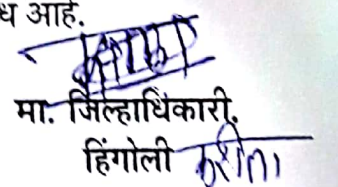 ध आहे.
मा. जिल्हाधिकारी.
हिंगोली करीता